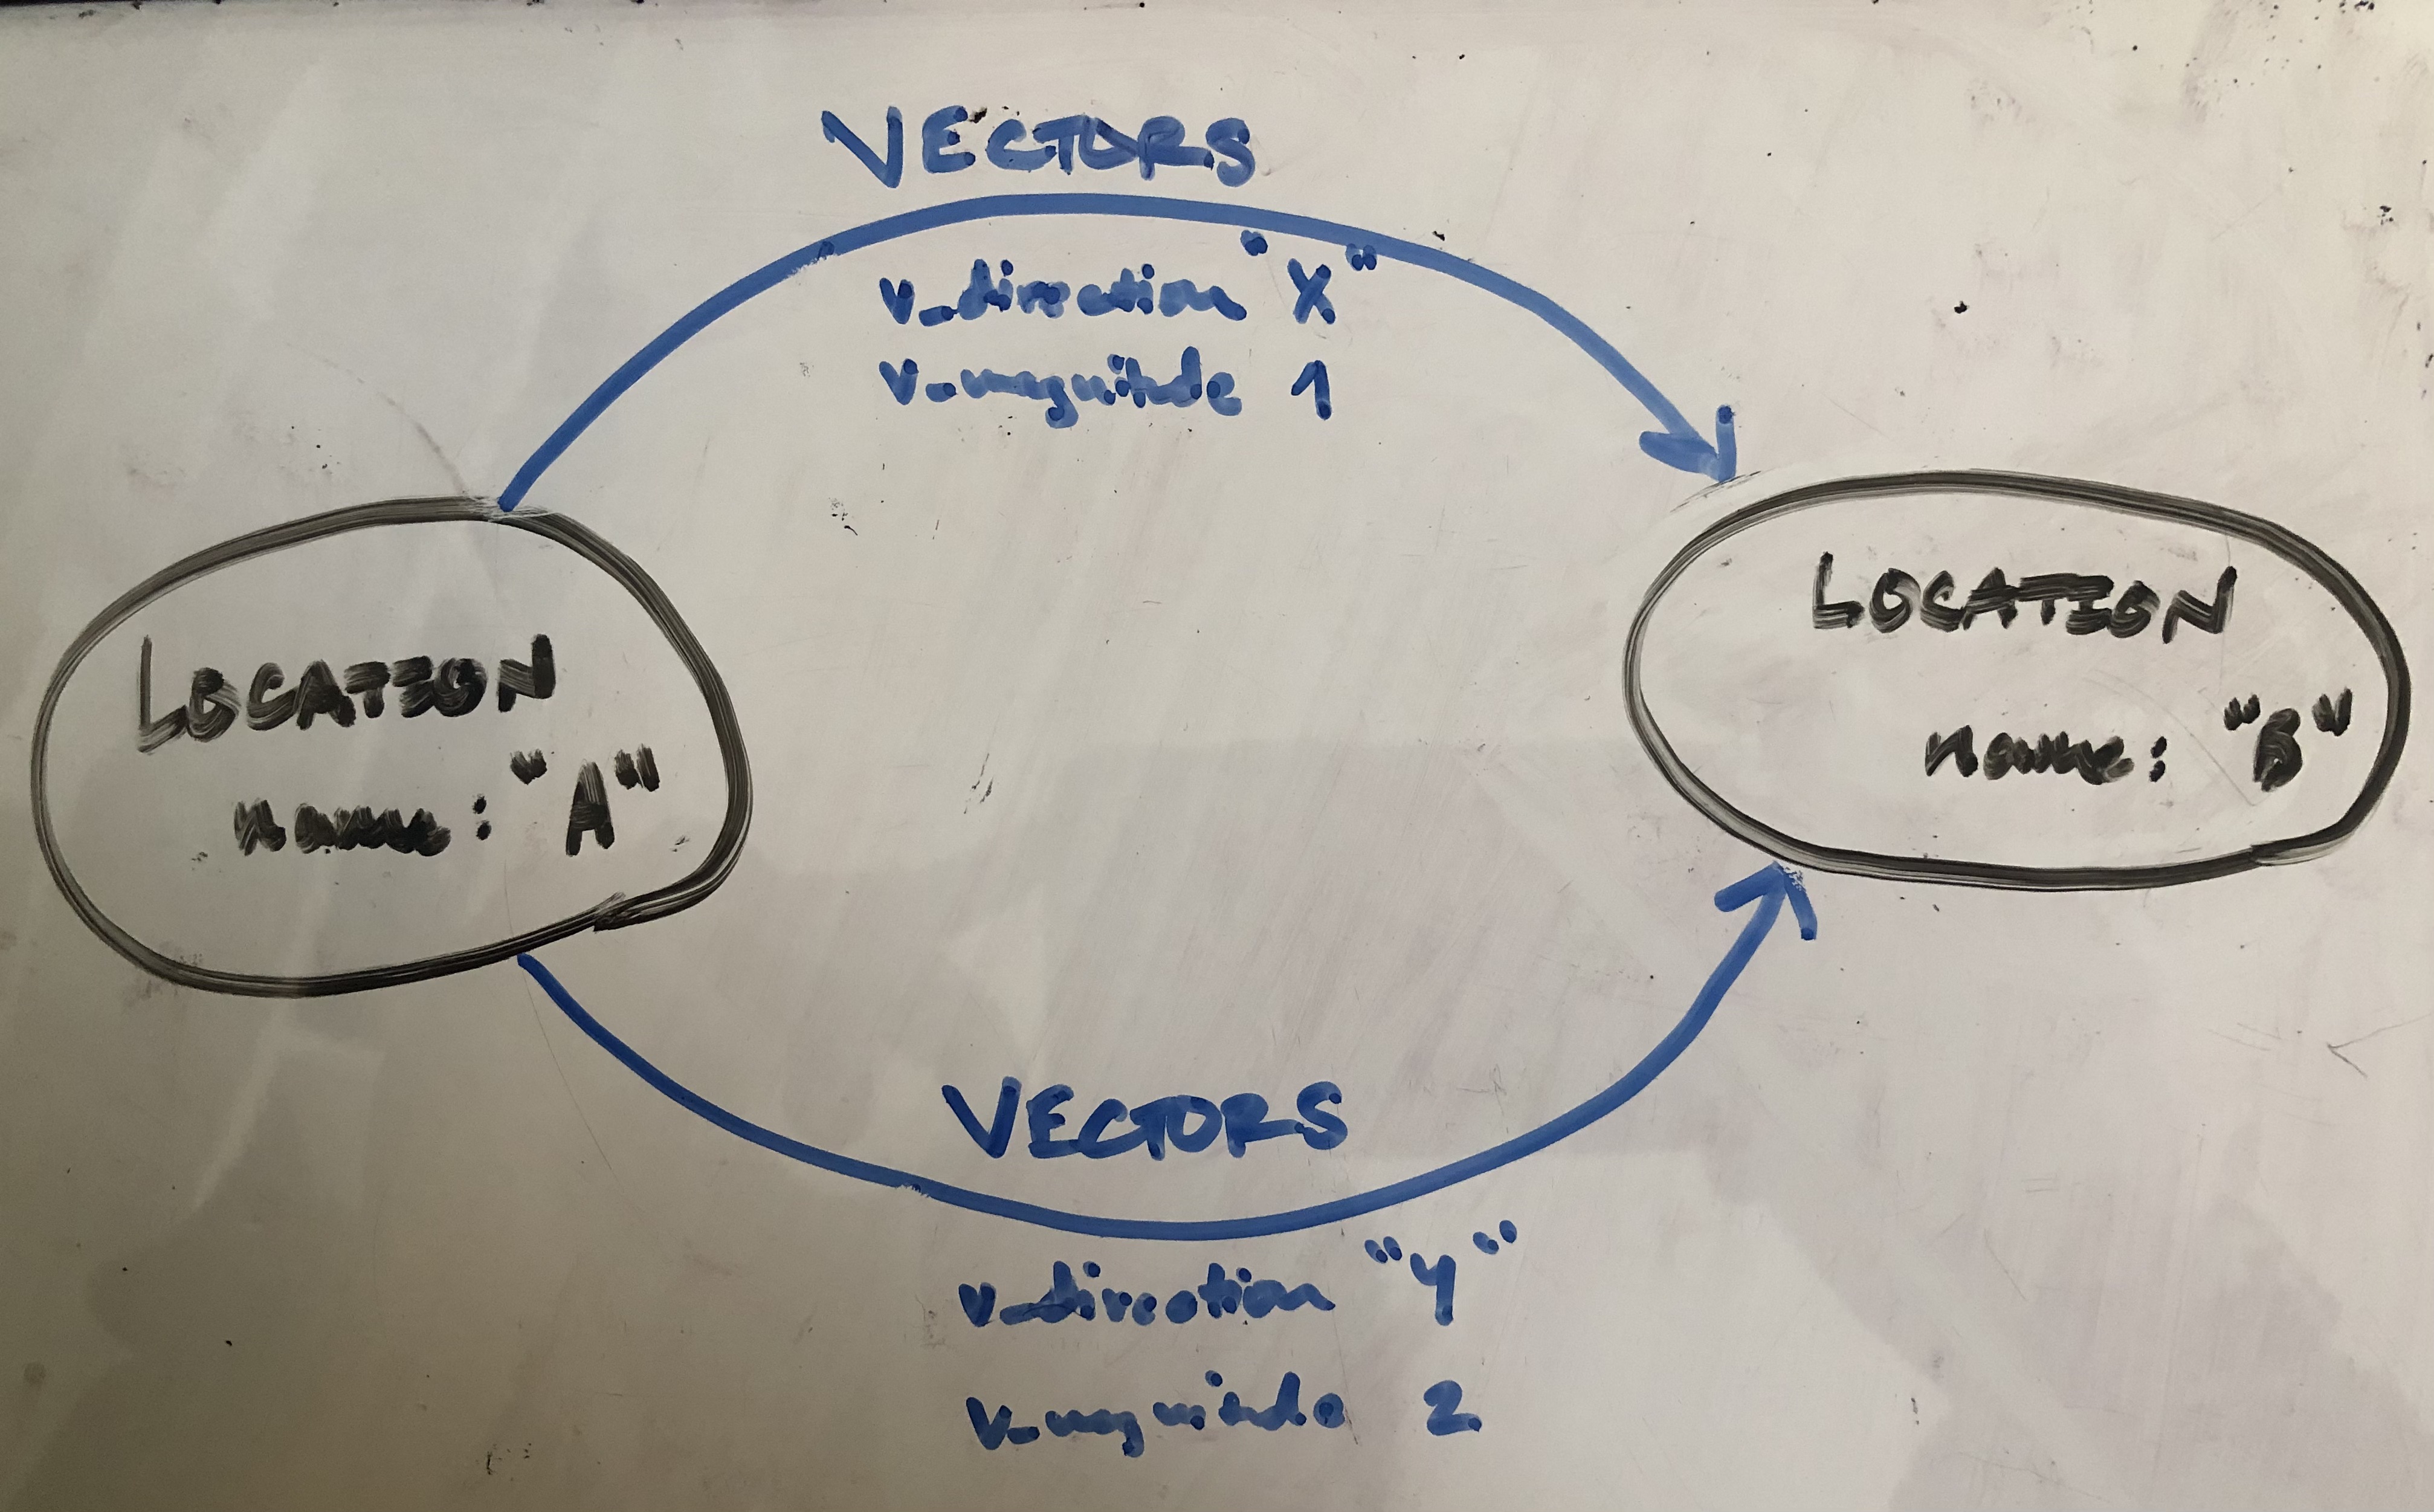 VECTORS
v_direction "X"
v_magnitude 1
LOCATION
name: "A"
LOCATION
name: "B"
VECTORS
v_direction "Y"
v_magnitude 2